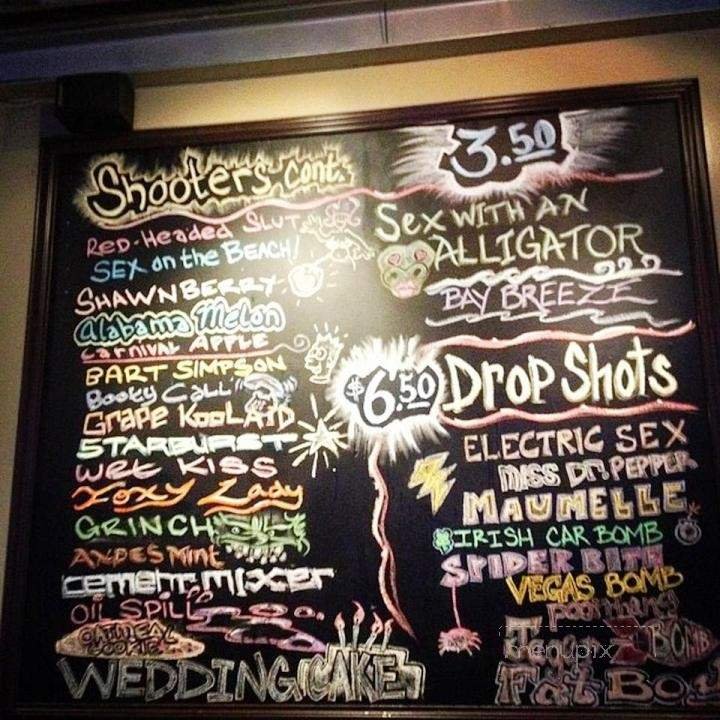 Shooters cont.
Red-Headed Slut
SEX on the BEACH!
SHAWNBERRY
Alabama Melon
Carnival APPLE
BART SIMPSON
Booty Call
Grape KooLAID
STARBURST
WET KISS
Foxy Lady
GRINCH
ANDES Mint
cement mixer
Oil SPILL
OATMEAL COOKIE
WEDDING CAKE
3.50
Sex WITH AN
ALLIGATOR
BAY BREEZE
$6.50 Drop Shots
ELECTRIC SEX
MISS DR. PEPPER
MAUMELLE
IRISH CAR BOMB
SPIDER BITE
VEGAS BOMB
Jager BOMB
Fat Boy
menupix